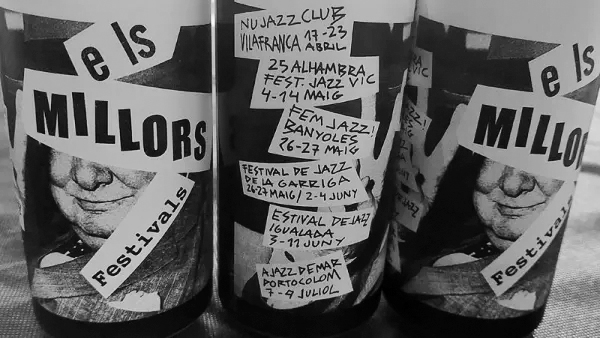 els
MILLORS
Festivals
NU JAZZ CLUB
VILAFRANCA 17-23
ABRIL
25 ALHAMBRA
FEST. JAZZ VIC
4-14 MAIG
FEM JAZZ!
BANYOLES
26-27 MAIG
FESTIVAL DE JAZZ
DE LA GARRIGA
26-27 MAIG / 2-4 JUNY
ESTIVAL DE JAZZ
IGUALADA
3-11 JUNY
A JAZZ DE MAR
PORTOCOLOM
7-9 JULIOL
VIC
els
MILLO
Festivals